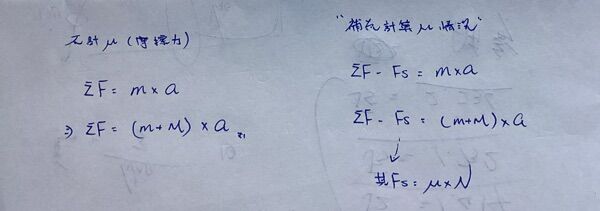 不計 μ (摩擦力)
ΣF = m × a
⇒ ΣF = (m+M) × a
"補充計算 μ 情況"
ΣF - Fs = m × a
ΣF - Fs = (m+M) × a
其 Fs = μ × N